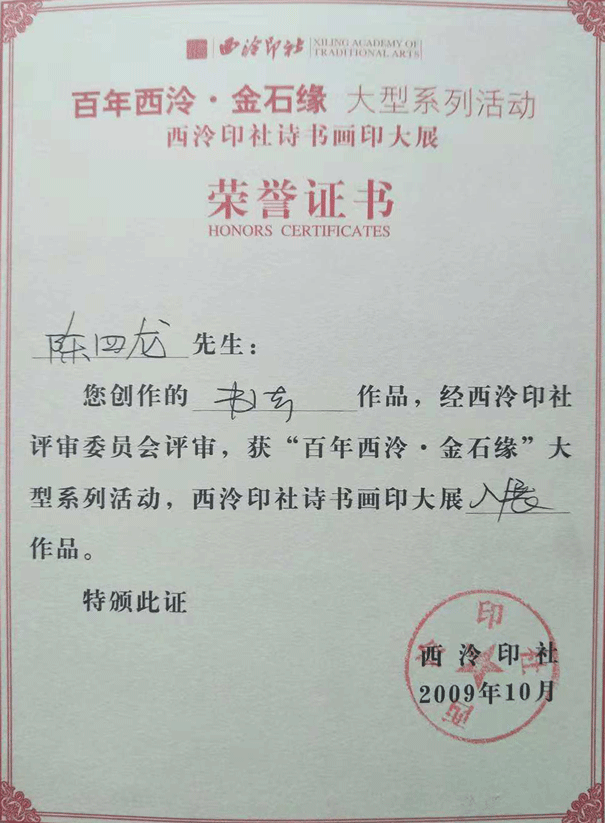 西泠印社 XILING ACADEMY OF
TRADITIONAL ARTS
百年西泠·金石缘 大型系列活动
西泠印社诗书画印大展
荣誉证书
HONORS CERTIFICATES
陈四龙 先生：
您创作的 书法 作品，经西泠印社
评审委员会评审，获“百年西泠·金石缘”大
型系列活动，西泠印社诗书画印大展入展
作品。
特颁此证
西泠印社
2009年10月
西泠印社